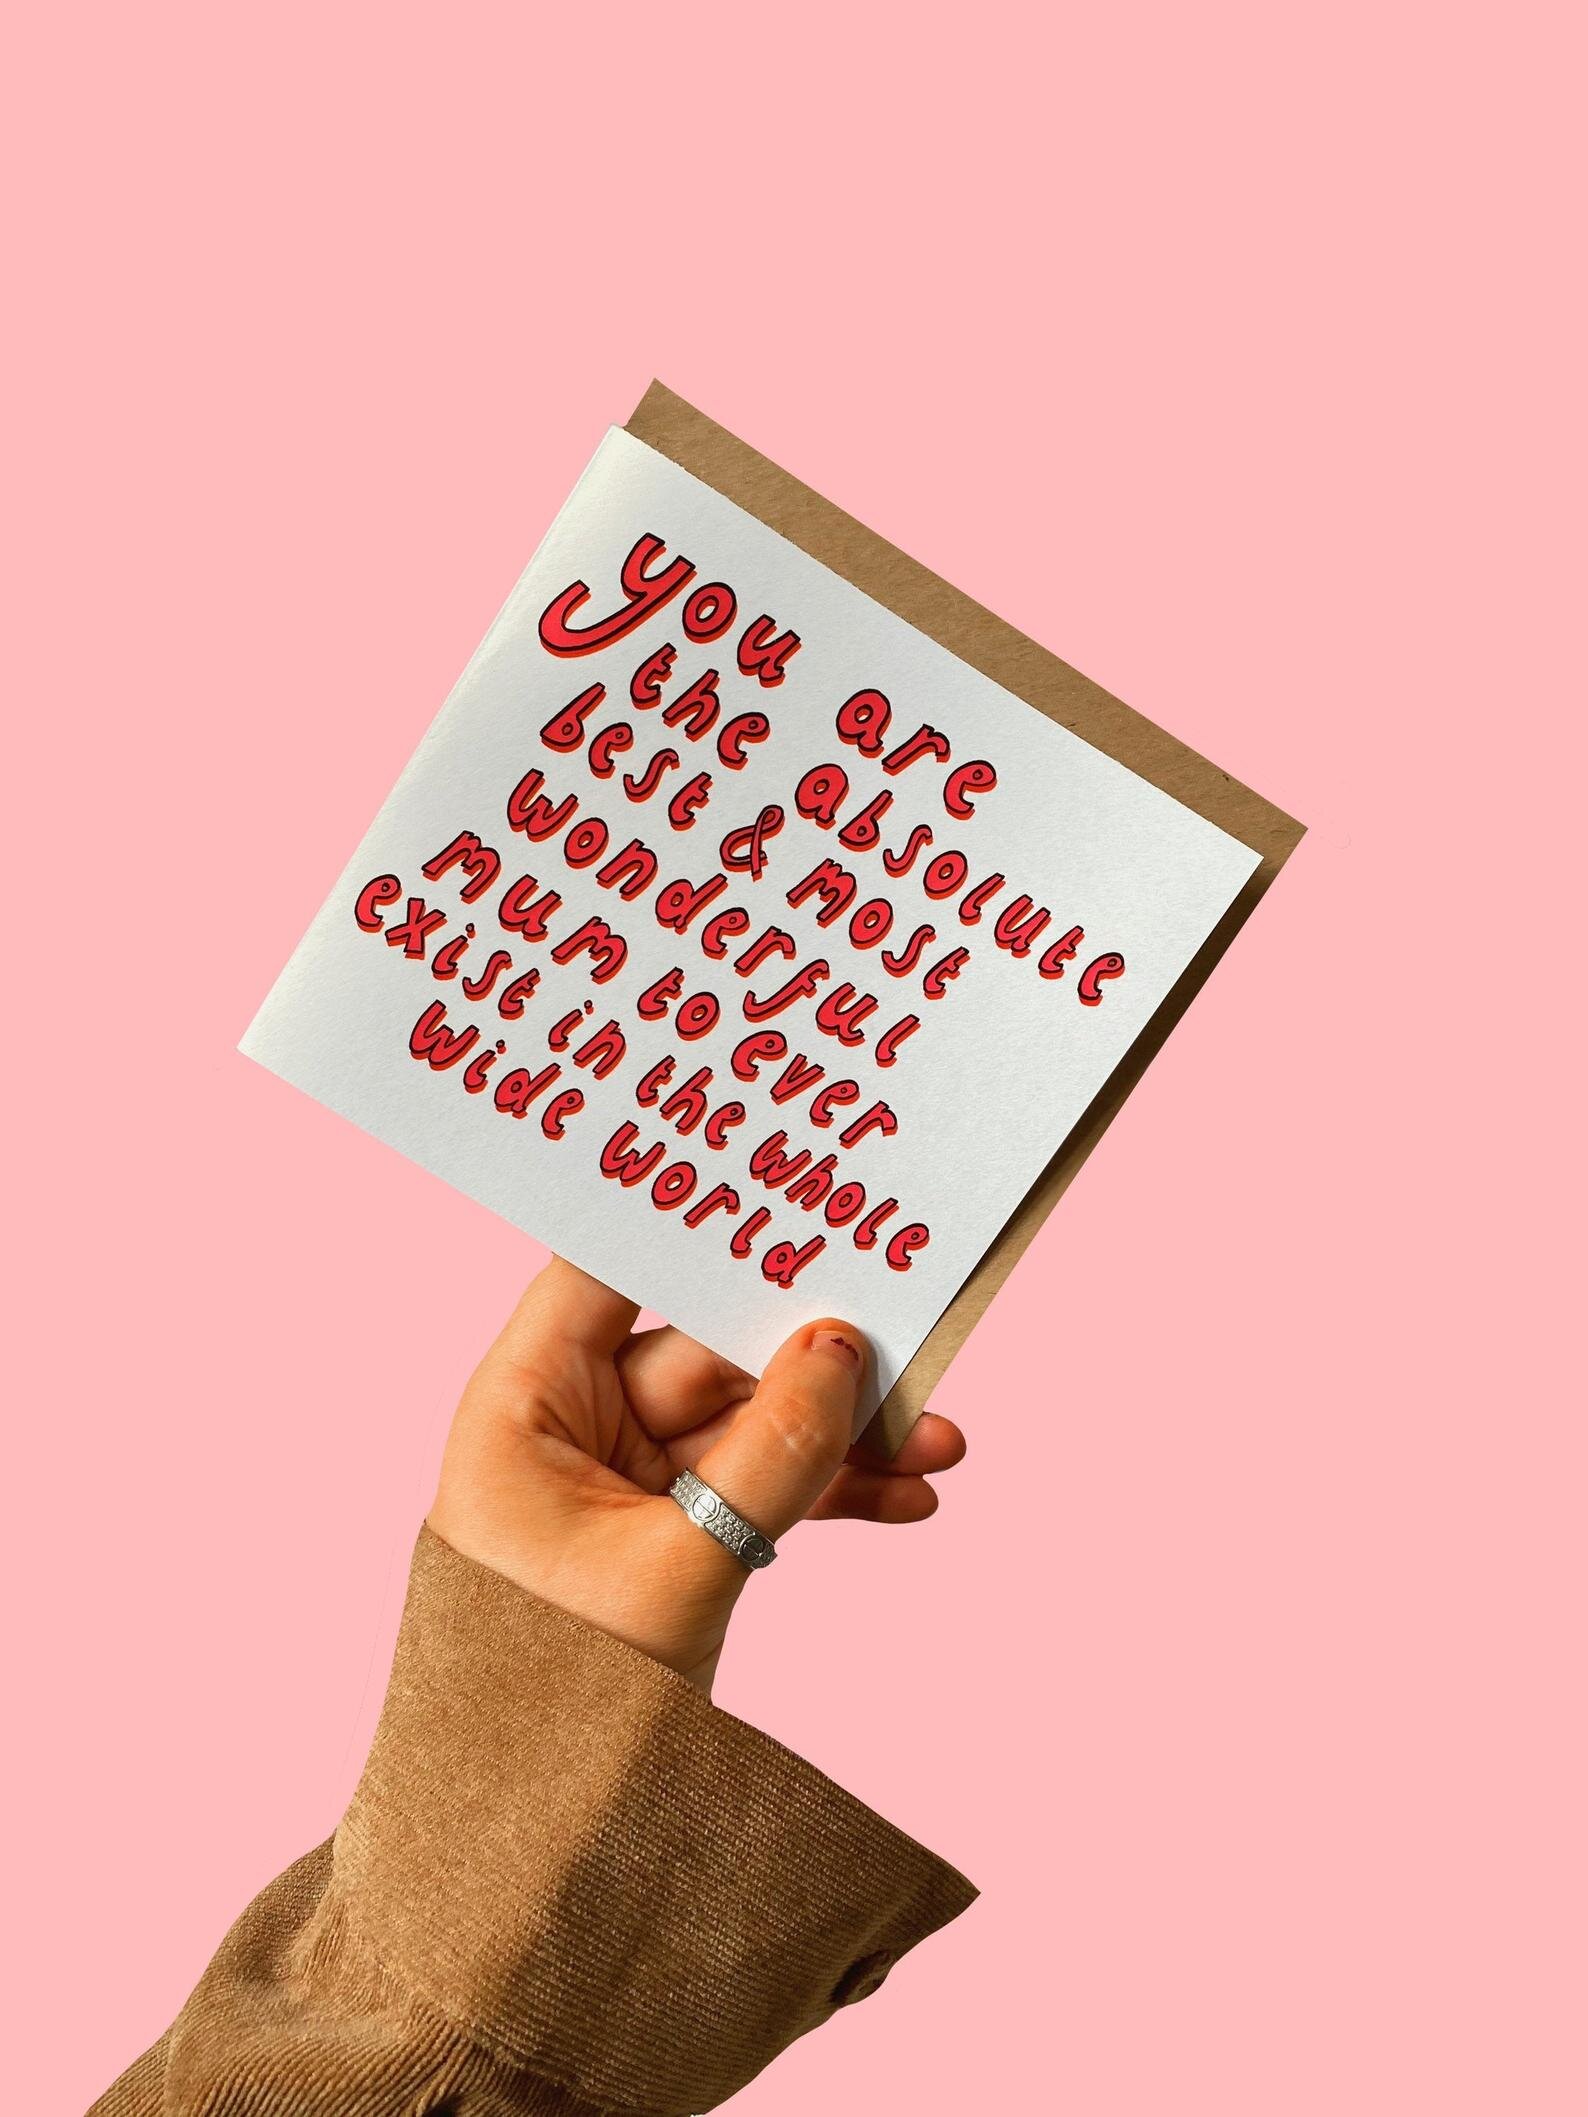 you are
the absolute
best & most
wonderful
mum to ever
exist in the whole
wide world